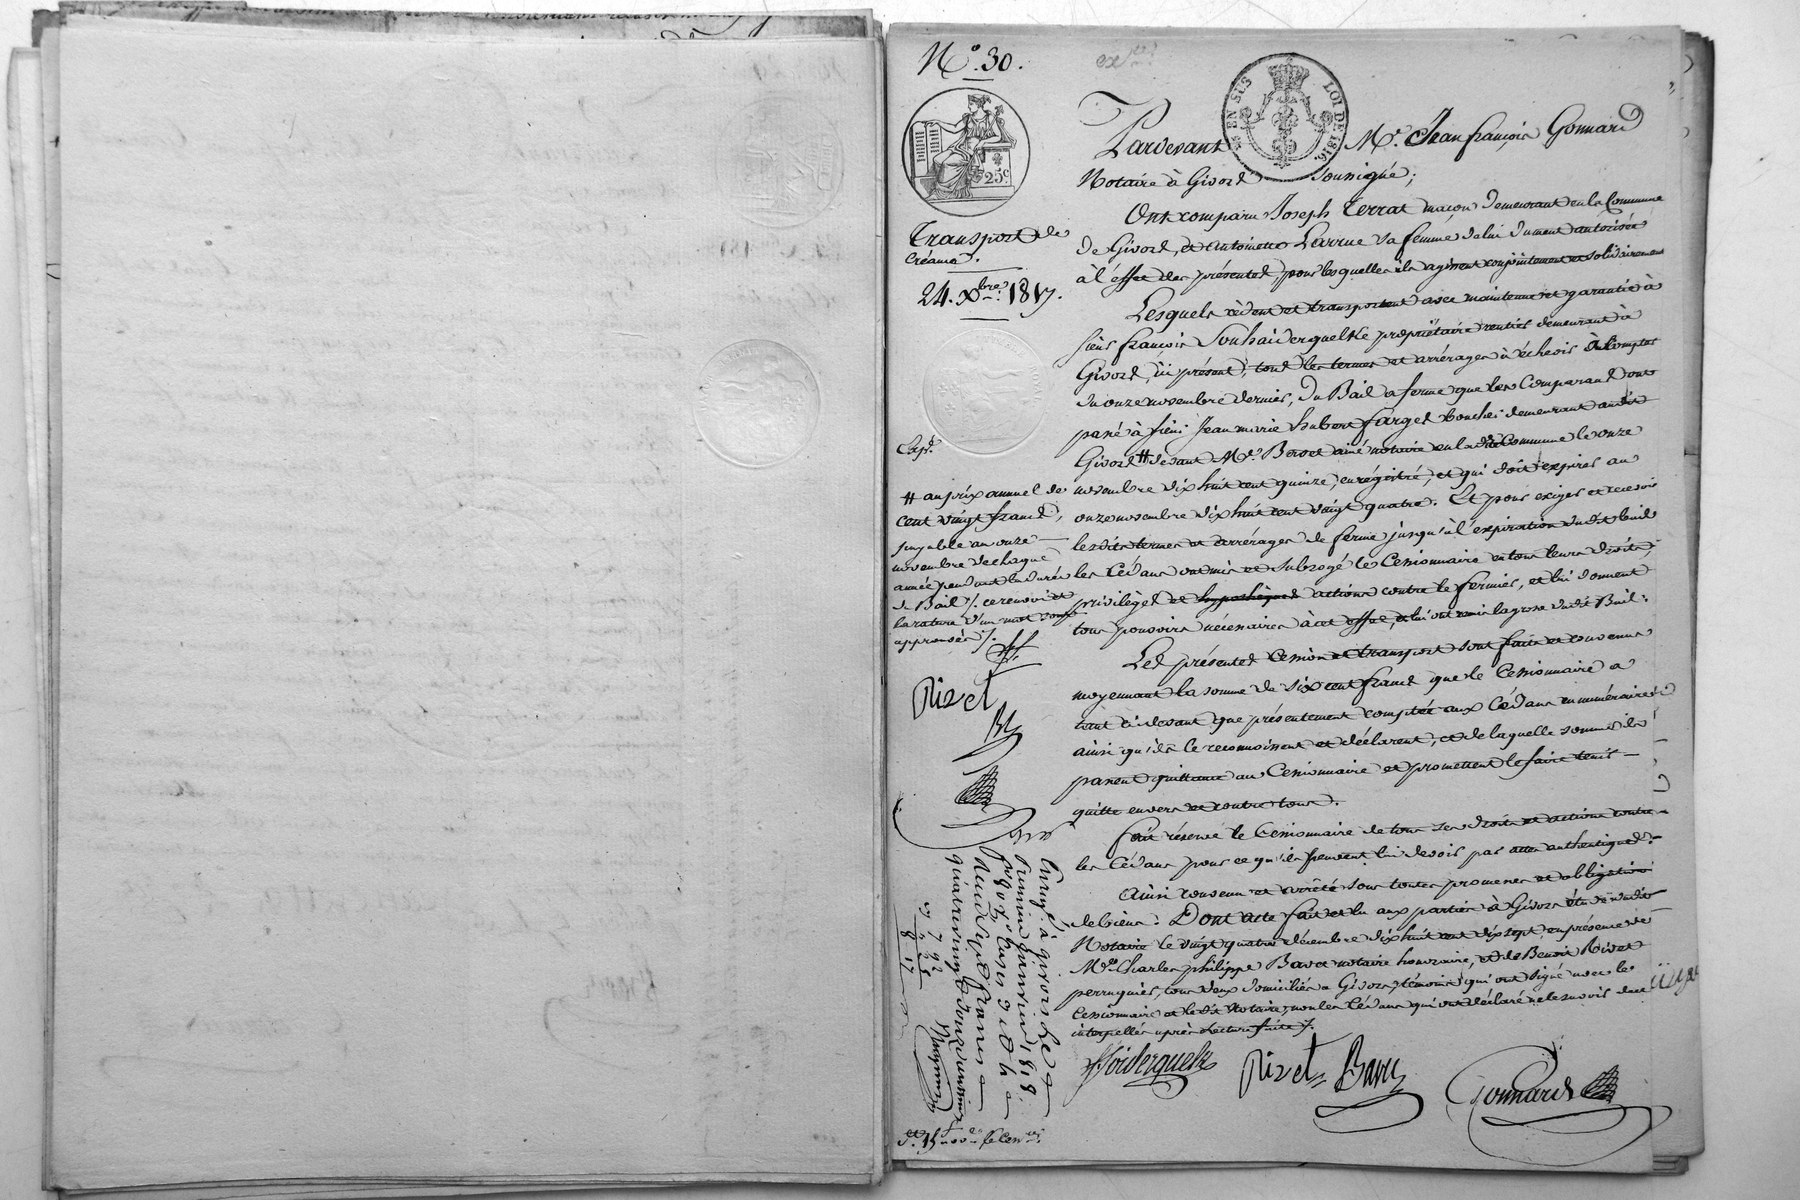 N.º 30.
EN SUS LOI DE 1816.
25 c
Pardevant Mᵉ. Jean françois Gonnard
Notaire à Givord soussigné;
Ont comparu Joseph Terrat maçon demeurant en la Commune
de Givord, et antoinette Larrue sa femme de lui dument autorisée
à l'effet des présentes, pour lesquelles ils agissent conjointement et solidairement
Lesquels cèdent et transportent avec maintenue et garantie à
sieur françois Souhaiderquelk propriétaire rentier demeurant à
Givord, ici présent, tous les termes et arrérages à échoir à compter
du onze novembre dernier, du Bail a ferme que les Comparans ont
passé à sieur Jean marie hubert farget boucher demeurant audit
Givord # devant Mᵉ. Berret ainé notaire en la dite Commune le onze
novembre dix huit cent quinze, enrégistré, et qui doit expirer au
onze novembre dix huit cent vingt quatre. Et pour exiger et recevoir
lesdits termes et arrérages de ferme jusqu'à l'expiration dudit bail
les Cédans ont mis et subrogé le Cessionnaire en tous leurs droits,
privilèges et hypothèques actions contre le fermier, et lui donnent
tous pouvoirs nécessaires à cet effet, et lui ont remis la grosse dudit Bail.
Les présentes Cession et transport sont faits et convenus
moyennant la somme de six cent francs que le Cessionnaire a
tant ci devant que présentement comptée aux Cédans en numéraire
ainsi qu'ils le reconnoissent et déclarent, et de laquelle somme ils
passent quittance au Cessionnaire et promettent le faire tenir
quitte envers et contre tous.
fait réserve le Cessionnaire de tous ses droits et actions contre
les Cédans pour ce qu'ils peuvent lui devoir par actes authentiques.
Ainsi convenu et arrêté sous toutes promesses et obligation
de biens. Dont acte fait et lu aux parties à Givors étude dudit
Notaire le vingt quatre décembre dix huit cent dix sept, en présence de
Mᵉ. Charles philippe Bavet notaire honoraire, et de Benoit Rivet
perruquier, tous deux domiciliés a Givors, témoins qui ont signé avec le
Cessionnaire et le dit Notaire, non les Cédans qui ont déclaré ne le savoir de ce
interpellés après lecture faite ./.
Rivet Gonnard
Transport de
Créance.
24. Xbre. 1817.
Exp.
# au prix annuel de
cent vingt francs,
payable au onze
novembre de chaque
année pendant la durée
du Bail ./. ce renvoi et
la rature d'un mot sont
approuvés ./.
Rivet
Enrg. à givors le
premier janvier 1818,